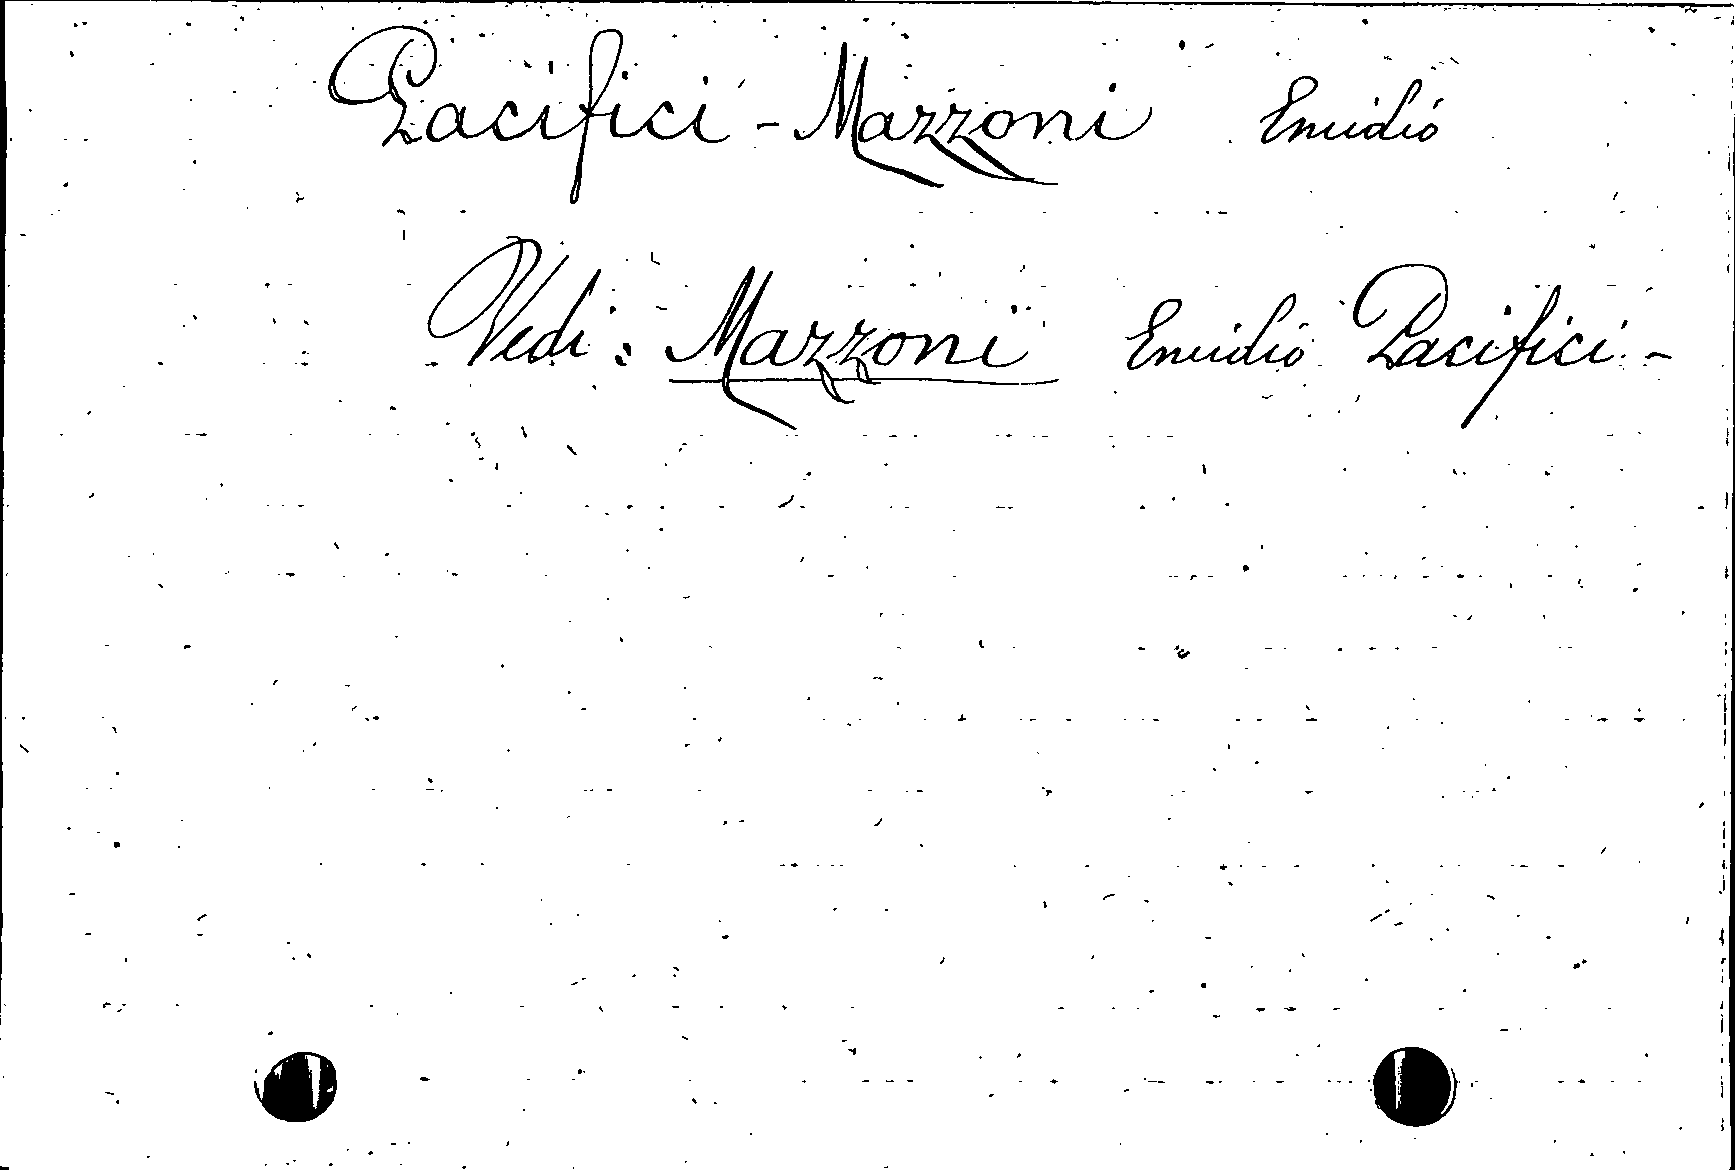 Pacifici - Mazzoni Emidio
Vedi: Mazzoni Emidio Pacifici -